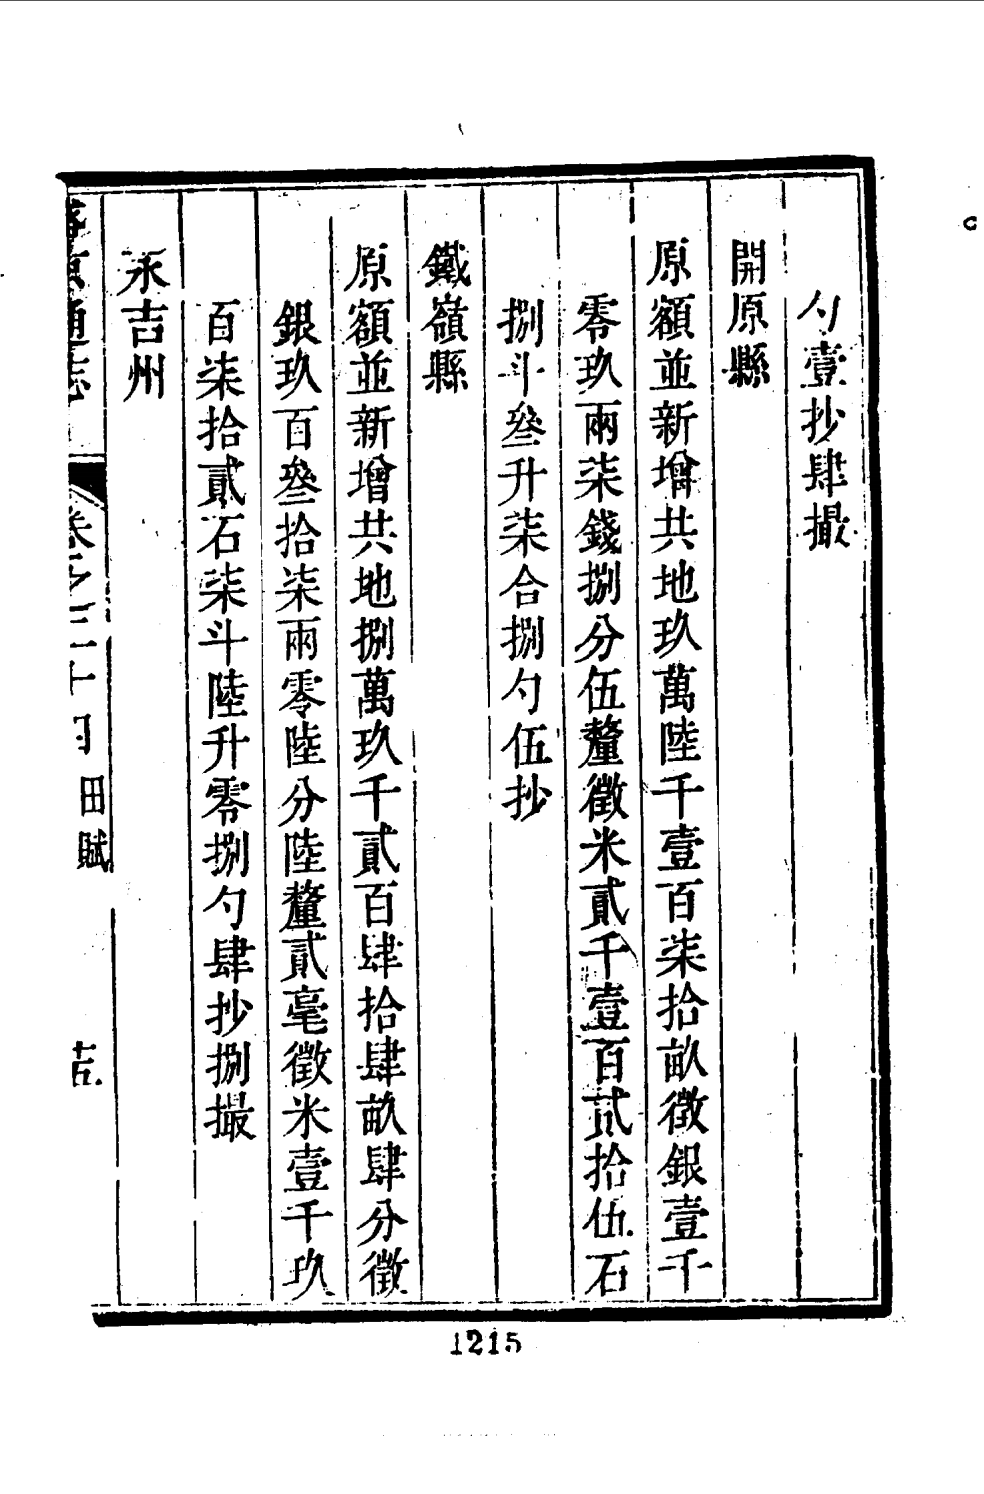 勺壹抄肆撮
開原縣
原額並新增共地玖萬陸千壹百柒拾畝徵銀壹千
零玖兩柒錢捌分伍釐徵米貳千壹百貳拾伍石
捌斗叄升柒合捌勺伍抄
鐵嶺縣
原額並新增共地捌萬玖千貳百肆拾肆畝肆分徵
銀玖百叄拾柒兩零陸分陸釐貳毫徵米壹千玖
百柒拾貳石柒斗陸升零捌勺肆抄捌撮
永吉州
京通志 卷之二十四 田賦
1215